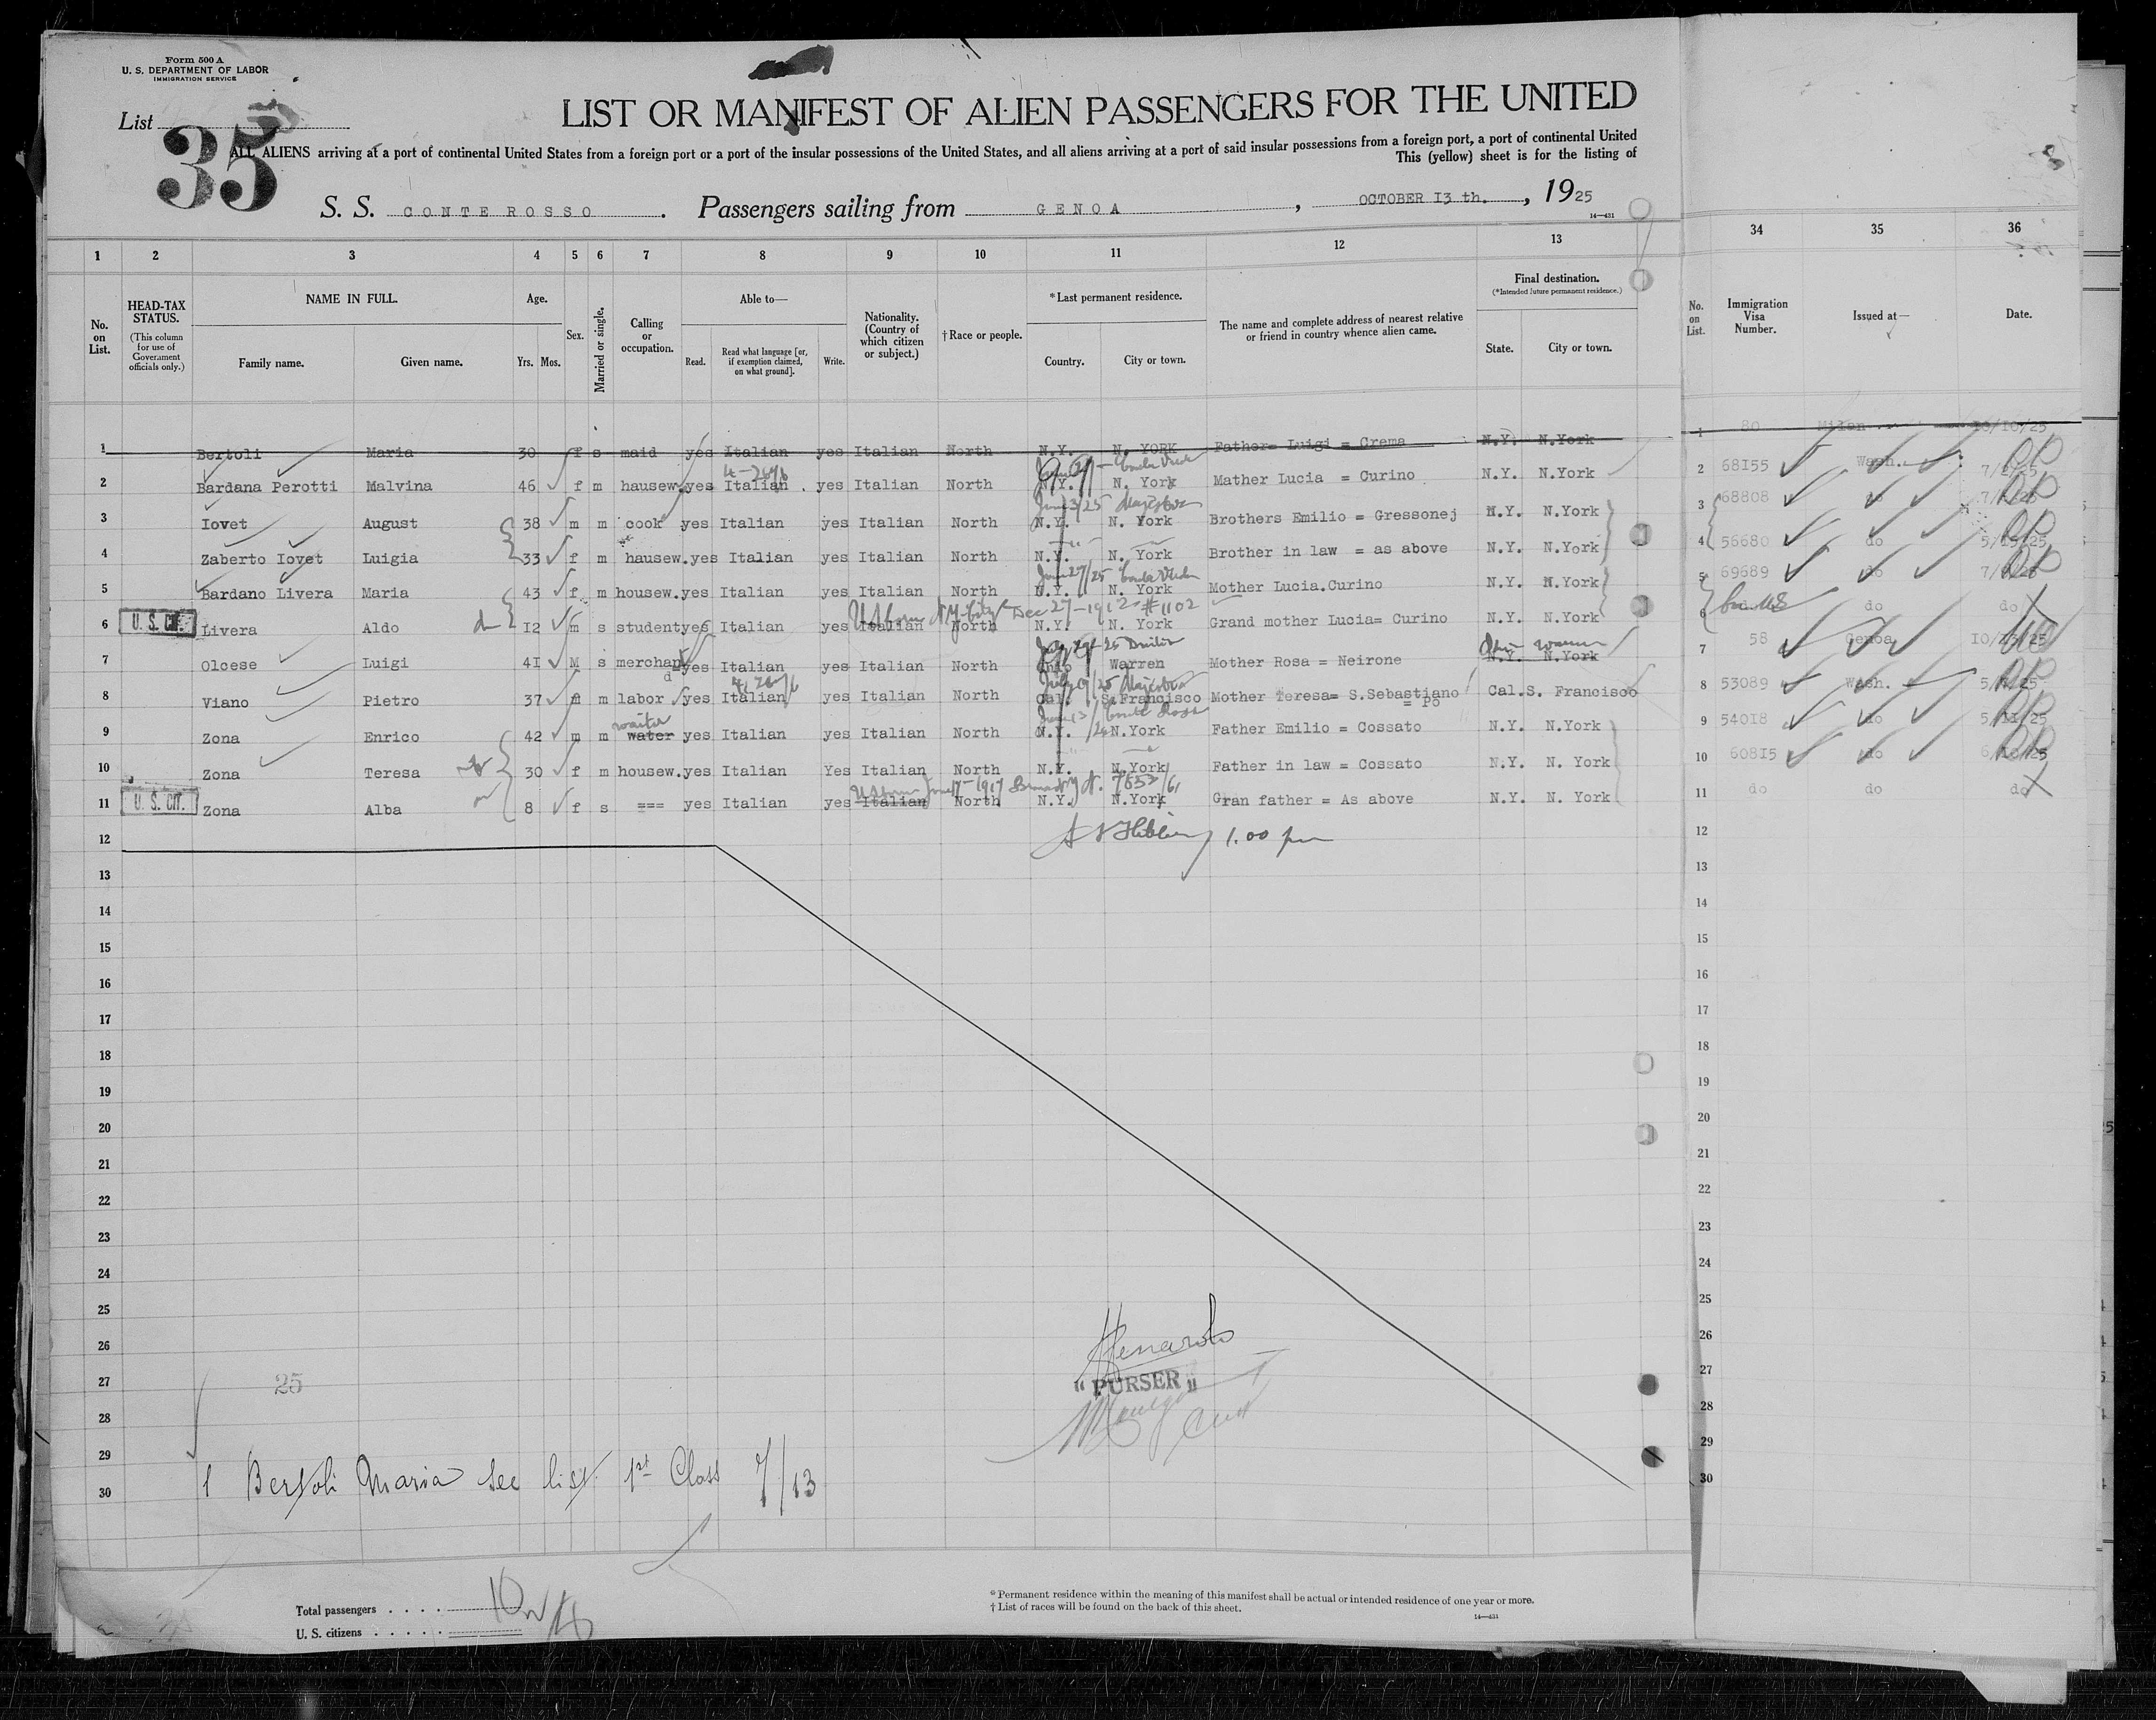 Form 500 A
U. S. DEPARTMENT OF LABOR
IMMIGRATION SERVICE
List
35
LIST OR MANIFEST OF ALIEN PASSENGERS FOR THE UNITED
ALL ALIENS arriving at a port of continental United States from a foreign port or a port of the insular possessions of the United States, and all aliens arriving at a port of said insular possessions from a foreign port, a port of continental United
This (yellow) sheet is for the listing of
S. S. CONTE ROSSO . Passengers sailing from GENOA , OCTOBER I3 th. , 1925
14—431
1 2 3 4 5 6 7 8 9 10 11 12 13 34 35 36
No. on List.
HEAD-TAX STATUS.
(This column for use of Government officials only.)
NAME IN FULL.
Family name. Given name.
Age.
Yrs. Mos.
Sex.
Married or single.
Calling or occupation.
Able to—
Read. Read what language [or, if exemption claimed, on what ground]. Write.
Nationality. (Country of which citizen or subject.)
†Race or people.
*Last permanent residence.
Country. City or town.
The name and complete address of nearest relative or friend in country whence alien came.
Final destination.
(*Intended future permanent residence.)
State. City or town.
No. on List.
Immigration Visa Number.
Issued at—
Date.
1 Bertoli Maria 30 f s maid yes Italian yes Italian North N.Y. N. YORK Father= Luigi = Crema N.Y. N.York 1 80 Milan 10/10/25
2 Bardana Perotti Malvina 46 f m hausew. yes Italian . yes Italian North N.Y. N. York Mather Lucia = Curino N.Y. N.York 2 68I55 Wash.
3 Iovet August 38 m m cook yes Italian yes Italian North N.Y. N. York Brothers Emilio = Gressonej N.Y. N.York 3 68808 do
4 Zaberto Iovet Luigia 33 f m hausew. yes Italian yes Italian North N.Y. N. York Brother in law = as above N.Y. N.York 4 56680 do
5 Bardano Livera Maria 43 f m housew. yes Italian yes Italian North N.Y. N. York Mother Lucia.Curino N.Y. N.York 5 69689 do
U. S. CIT.
US born N.Y. City Dec 27-1912 #1102
6 Livera Aldo I2 m s student yes Italian yes Italian North N.Y. N. York Grand mother Lucia= Curino N.Y. N.York 6 do do
7 Olcese Luigi 4I M s merchant yes Italian yes Italian North Ohio Warren Mother Rosa = Neirone N.Y. N.York 7 58 Genoa
8 Viano Pietro 37 m m labor yes Italian yes Italian North Cal. S.Francisco Mother Teresa= S.Sebastiano = Po Cal. S. Francisco 8 53089 Wash.
waiter
9 Zona Enrico 42 m m water yes Italian yes Italian North N.Y. N.York Father Emilio = Cossato N.Y. N.York 9 540I8 do 5/II/25
10 Zona Teresa 30 f m housew. yes Italian Yes Italian North N.Y. N.York Father in law = Cossato N.Y. N. York 10 608I5 do 6/10/25
U. S. CIT.
11 Zona Alba 8 f s === yes Italian yes Italian North N.Y. N.York Gran father = As above N.Y. N. York 11 do do do
12 1.00 pm 12
13 13
14 14
15 15
16 16
17 17
18 18
19 19
20 20
21 21
22 22
23 23
24 24
25 25
26 26
27 25 "PURSER" 27
28 28
29 29
30 1 Bertoli Maria see list 1st Class 7/13 30
Total passengers . . . . 10
U. S. citizens . . . . .
*Permanent residence within the meaning of this manifest shall be actual or intended residence of one year or more.
†List of races will be found on the back of this sheet.
14—431